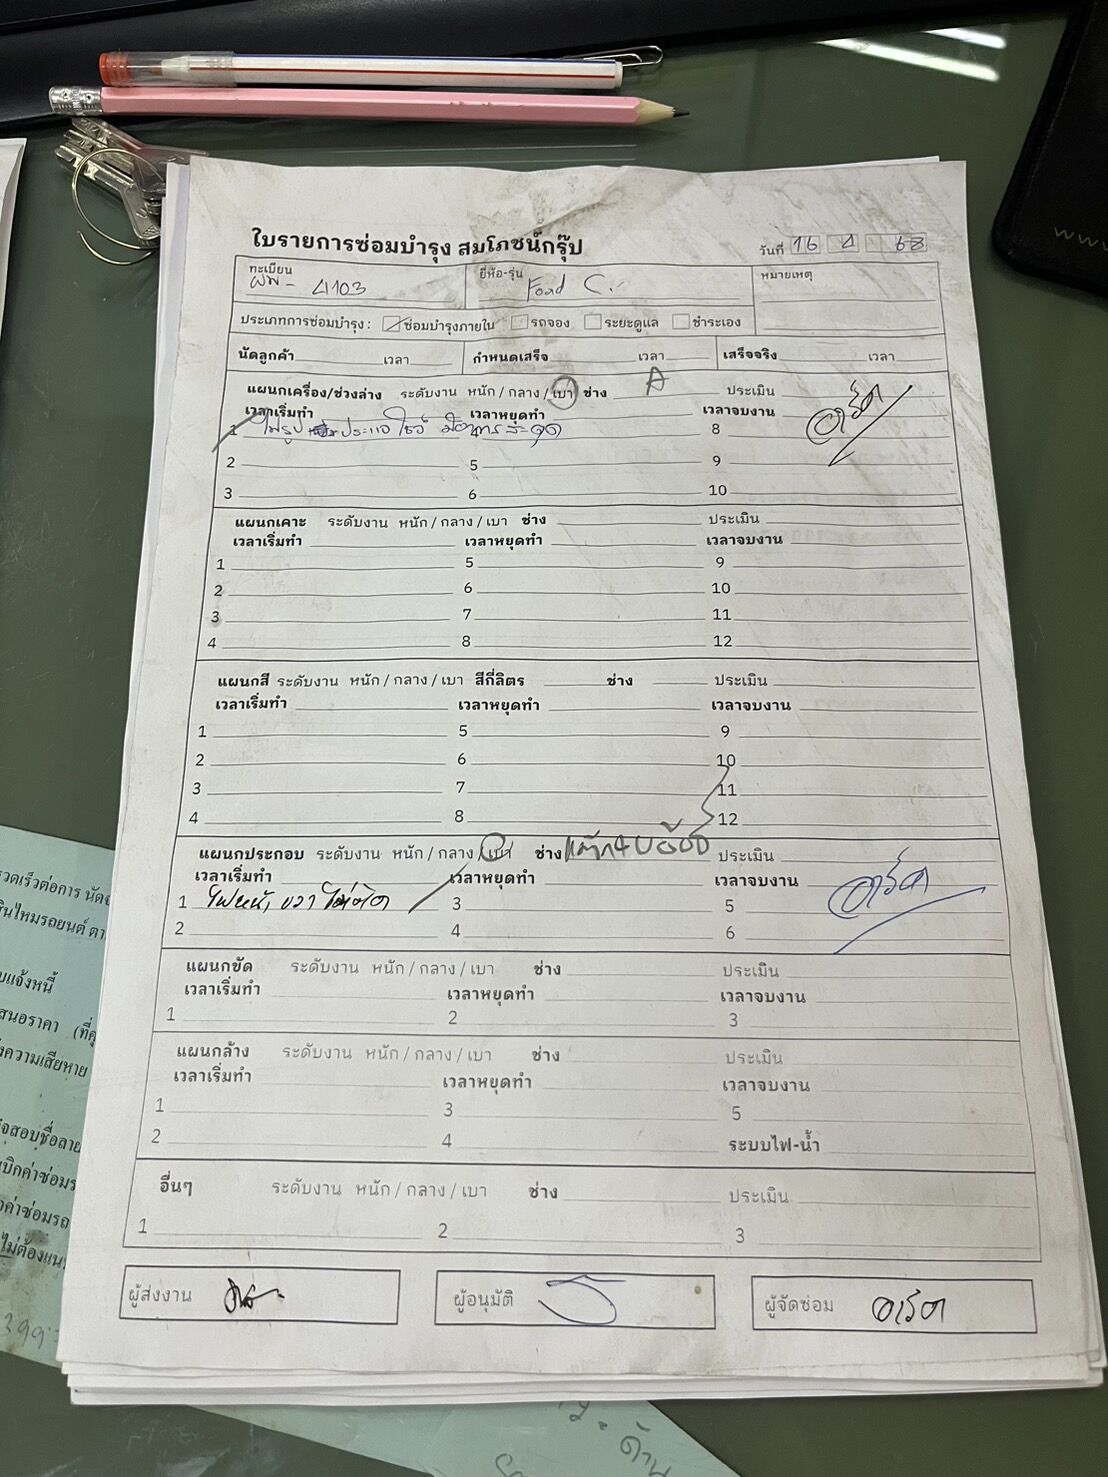 ใบรายการซ่อมบำรุง สมโภชน์กรุ๊ป
วันที่ 16 4 68
ทะเบียน 4103
ยี่ห้อ-รุ่น Foad C.
หมายเหตุ
ประเภทการซ่อมบำรุง : ซ่อมบำรุงภายใน รถจอง ระยะดูแล ชำระเอง
นัดลูกค้า เวลา กำหนดเสร็จ เวลา เสร็จจริง เวลา
แผนกเครื่อง/ช่วงล่าง ระดับงาน หนัก / กลาง / เบา ช่าง A ประเมิน
เวลาเริ่มทำ เวลาหยุดทำ เวลาจบงาน
1 ไฟรูปประแจโชว์ มีอาการสะดุด 8
2 5 9
3 6 10
แผนกเคาะ ระดับงาน หนัก / กลาง / เบา ช่าง ประเมิน
เวลาเริ่มทำ เวลาหยุดทำ เวลาจบงาน
1 5 9
2 6 10
3 7 11
4 8 12
แผนกสี ระดับงาน หนัก / กลาง / เบา สีกี่ลิตร ช่าง ประเมิน
เวลาเริ่มทำ เวลาหยุดทำ เวลาจบงาน
1 5 9
2 6 10
3 7 11
4 8 12
แผนกประกอบ ระดับงาน หนัก / กลาง / เบา ช่าง ประเมิน
เวลาเริ่มทำ เวลาหยุดทำ เวลาจบงาน
1 ไฟหน้า ขวา ไม่ติด 3 5
2 4 6
แผนกขัด ระดับงาน หนัก / กลาง / เบา ช่าง ประเมิน
เวลาเริ่มทำ เวลาหยุดทำ เวลาจบงาน
1 2 3
แผนกล้าง ระดับงาน หนัก / กลาง / เบา ช่าง ประเมิน
เวลาเริ่มทำ เวลาหยุดทำ เวลาจบงาน
1 3 5
2 4 ระบบไฟ-น้ำ
อื่นๆ ระดับงาน หนัก / กลาง / เบา ช่าง ประเมิน
1 2 3
ผู้ส่งงาน
ผู้อนุมัติ
ผู้จัดซ่อม อาร์ต